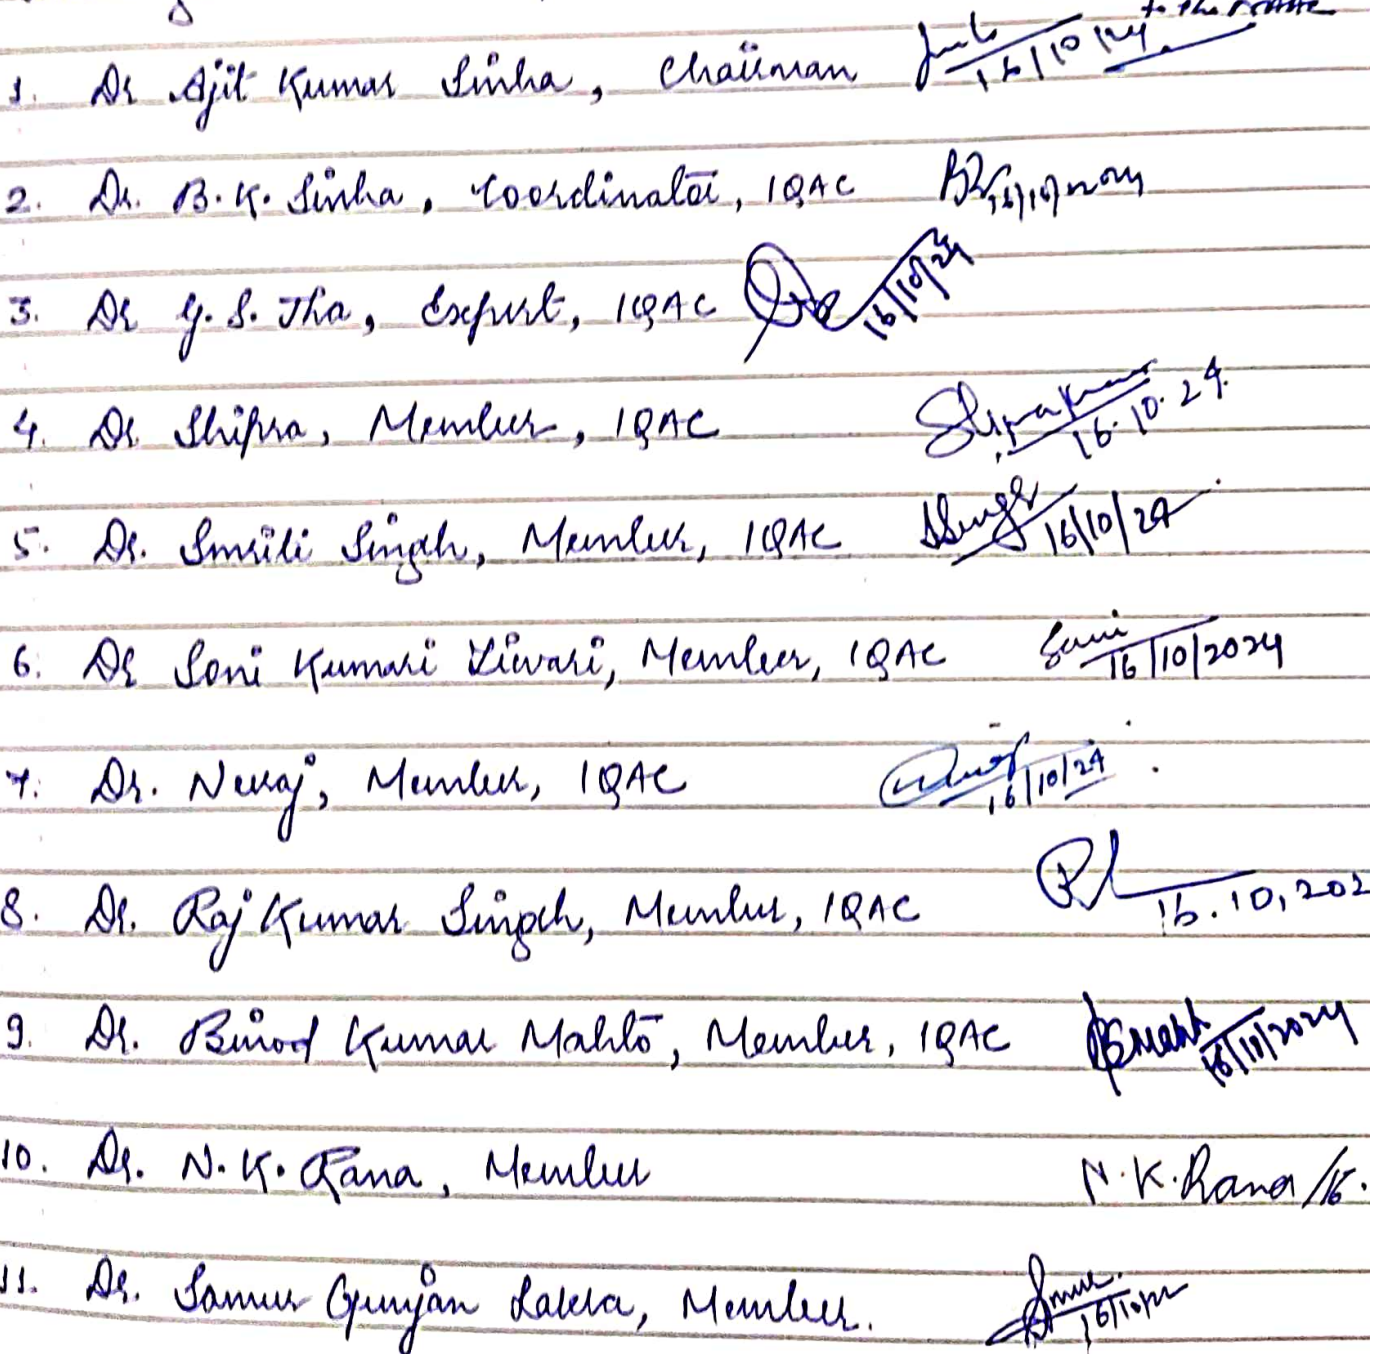 to the NAAC
1. Dr Ajit Kumar Sinha, Chairman 16/10/24
2. Dr. B.K. Sinha, Coordinator, IQAC 16/10/2024
3. Dr Y. S. Jha, Expert, IQAC 16/10/24
4. Dr Shipra, Member, IQAC 16.10.24.
5. Dr. Smriti Singh, Member, IQAC 16/10/24
6. Dr Soni Kumari Tiwari, Member, IQAC Soni 16/10/2024
7. Dr. Neeraj, Member, IQAC 16/10/24
8. Dr. Raj Kumar Singh, Member, IQAC 16.10,202
9. Dr. Binod Kumar Mahto, Member, IQAC 16/10/2024
10. Dr. N.K. Rana, Member N.K. Rana/16.
11. Dr. Samir Gunjan Lakra, Member. 16/10/24